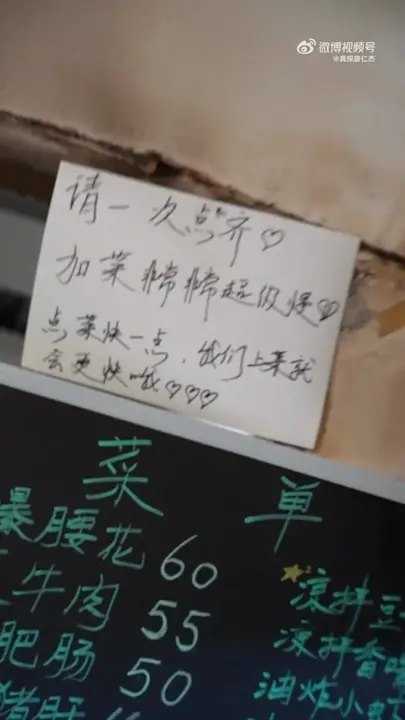 微博视频号
@真探唐仁杰
请一次点齐♡
加菜非常非常超级慢♡
点菜快一点，我们上菜就
会更快哦♡♡♡
菜单
爆腰花 60
牛肉 55
肥肠 50
猪肝
凉拌豆
凉拌香
油炸小